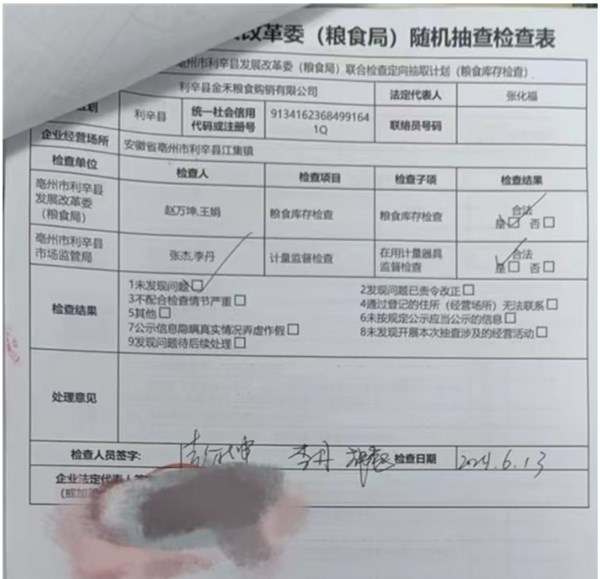 改革委（粮食局）随机抽查检查表
亳州市利辛县发展改革委（粮食局）联合检查定向抽取计划（粮食库存检查）
利辛县金禾粮食购销有限公司 法定代表人 张化福
划 利辛县 统一社会信用代码或注册号 91341623684991641Q 联络员号码
企业经营场所 安徽省亳州市利辛县江集镇
检查单位 检查人 检查项目 检查子项 检查结果
亳州市利辛县发展改革委（粮食局） 赵万坤,王娟 粮食库存检查 粮食库存检查 合法 是☐ 否☐
亳州市利辛县市场监管局 张杰,李丹 计量监督检查 在用计量器具监督检查 合法 是☐ 否☐
检查结果
1未发现问题☐ 2发现问题已责令改正☐
3不配合检查情节严重☐ 4通过登记的住所（经营场所）无法联系☐
5其他☐ 6未按规定公示应当公示的信息☐
7公示信息隐瞒真实情况弄虚作假☐ 8未发现开展本次抽查涉及的经营活动☐
9发现问题待后续处理☐
处理意见
检查人员签字: 李丹 检查日期 2024.6.13
企业法定代表人